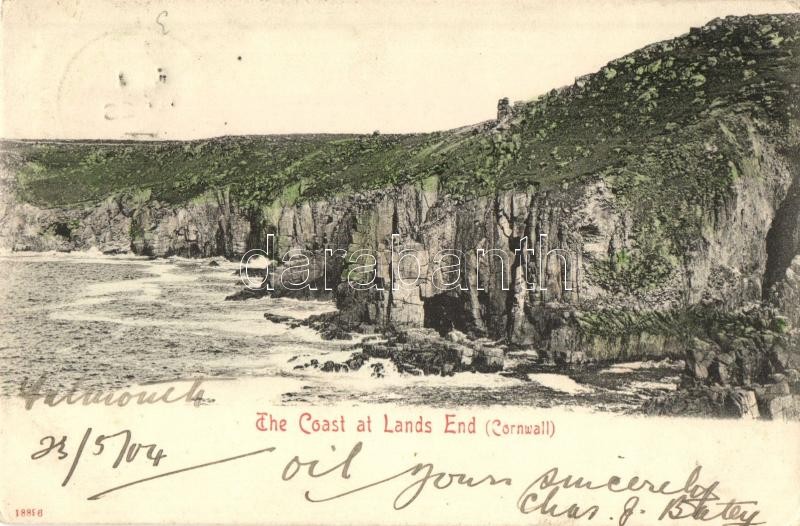 3
darabanth
Falmouth
The Coast at Lands End (Cornwall)
23/5/04
yours sincerely
Chas. J.